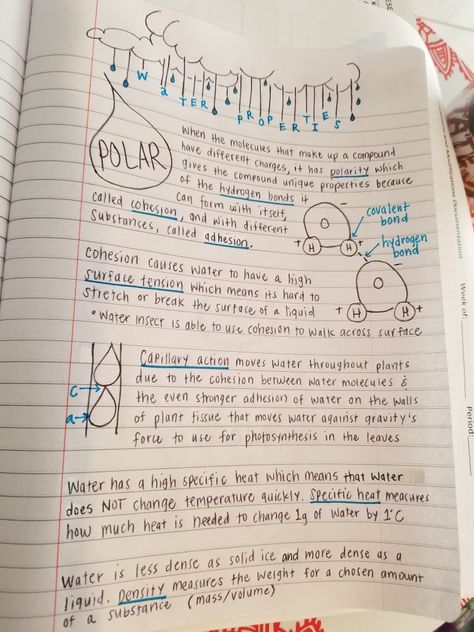 WATER PROPERTIES
POLAR
When the molecules that make up a compound
have different charges, it has polarity which
gives the compound unique properties because
of the hydrogen bonds it
can form with itself,
called cohesion, and with different
substances, called adhesion.
covalent
bond
hydrogen
bond
-
O
+ H H +
-
O
+ H H +
cohesion causes water to have a high
surface tension which means its hard to
stretch or break the surface of a liquid
• Water insect is able to use cohesion to walk across surface
c→
a→
Capillary action moves water throughout plants
due to the cohesion between water molecules &
the even stronger adhesion of water on the walls
of plant tissue that moves water against gravity's
force to use for photosynthesis in the leaves
Water has a high specific heat which means that water
does NOT change temperature quickly. Specific heat measures
how much heat is needed to change 1g of water by 1°C
Water is less dense as solid ice and more dense as a
liquid. Density measures the weight for a chosen amount
of a substance (mass/volume)
Documentation
Week of:
Period: